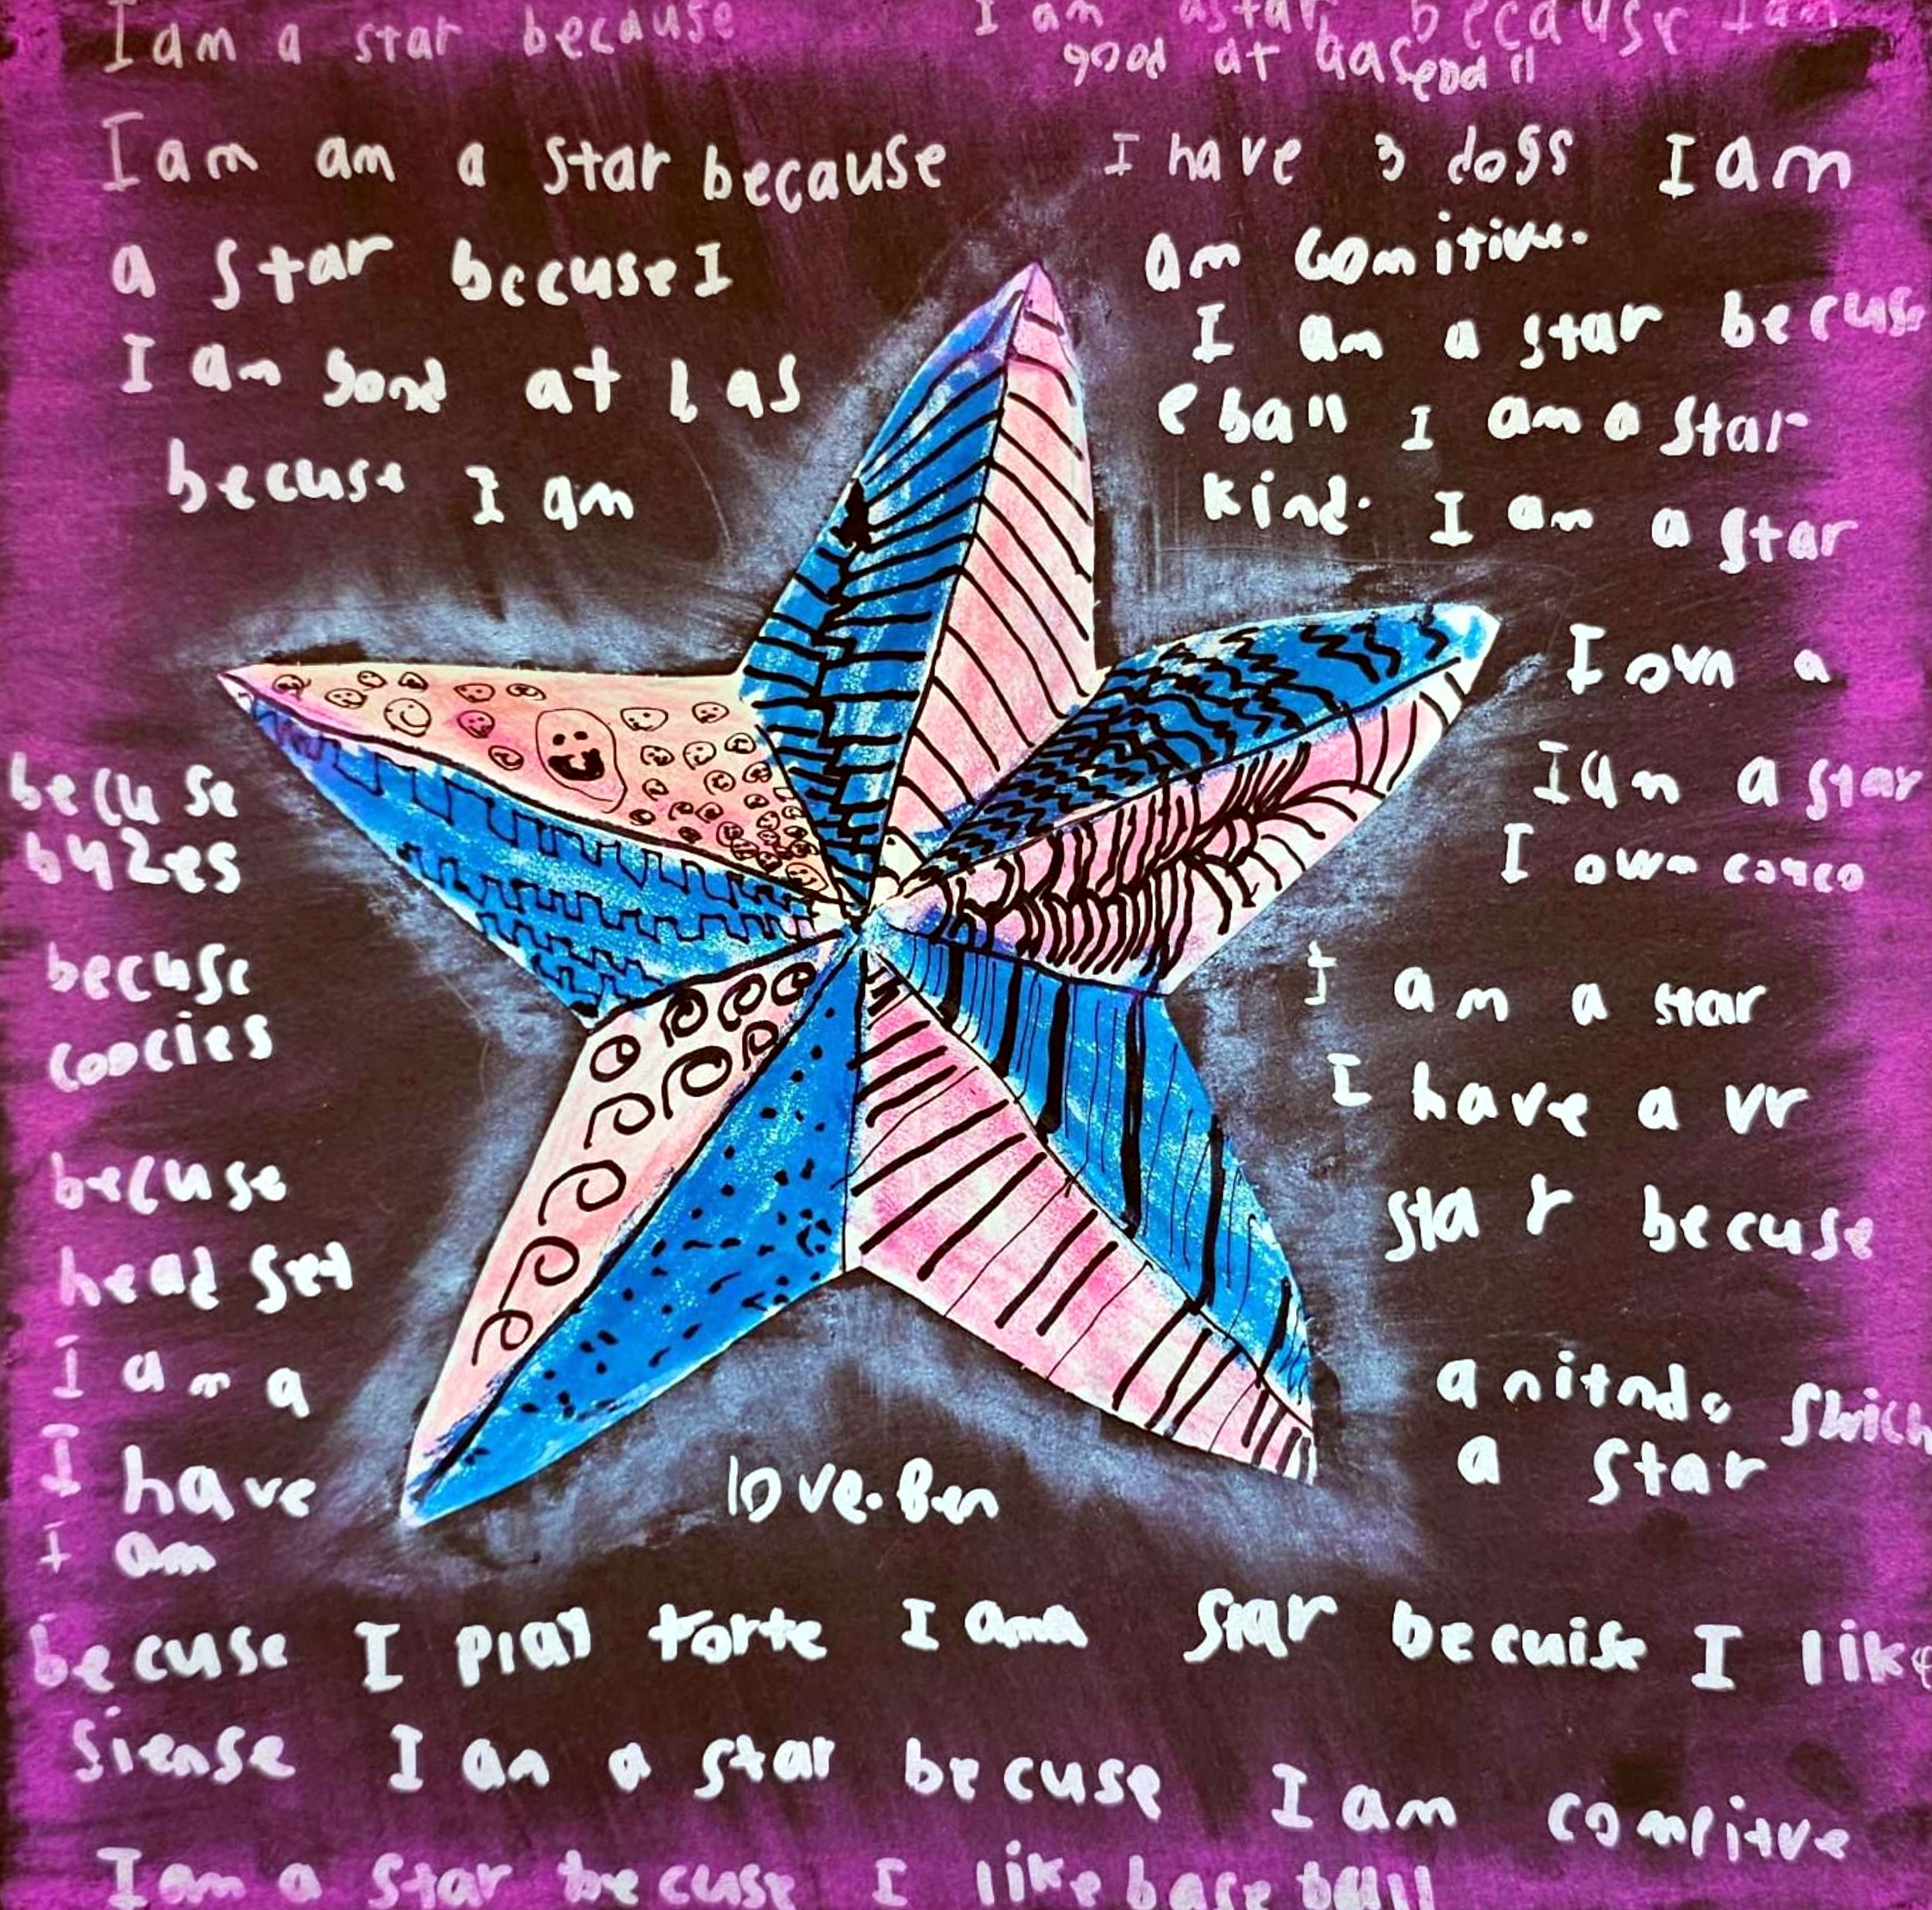 I am a star because I am a star because I am
good at baseball
I am am a star because I have 3 dogs I am
a star becuse I am comitive.
I am a star becuse
I am good at bas e ball I am a star
becuse I am kind. I am a star
becuse I own a
byzes I am a star
I own
becuse I am a star
coocies I have a vr
becuse star becuse
head set
I am a a nitndo swich
I have a star
I am
love. Ben
becuse I play I am a star becuise I like
siense I am a star becuse I am compitve
I am a star becuse I like base ball